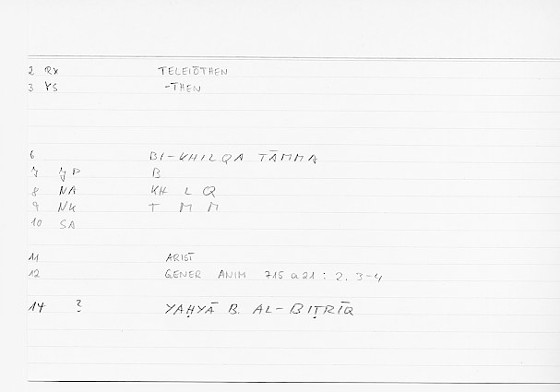 2 RX TELEIŌTHEN
3 YS -THEN
6 BI-KHILQA TĀMMA
7 JP B
8 NA KH L Q
9 NK T M M
10 SA
11 ARIST
12 GENER ANIM 715 a 21 : 2. 3-4
14 ? YAḤYĀ B. AL-BIṬRĪQ